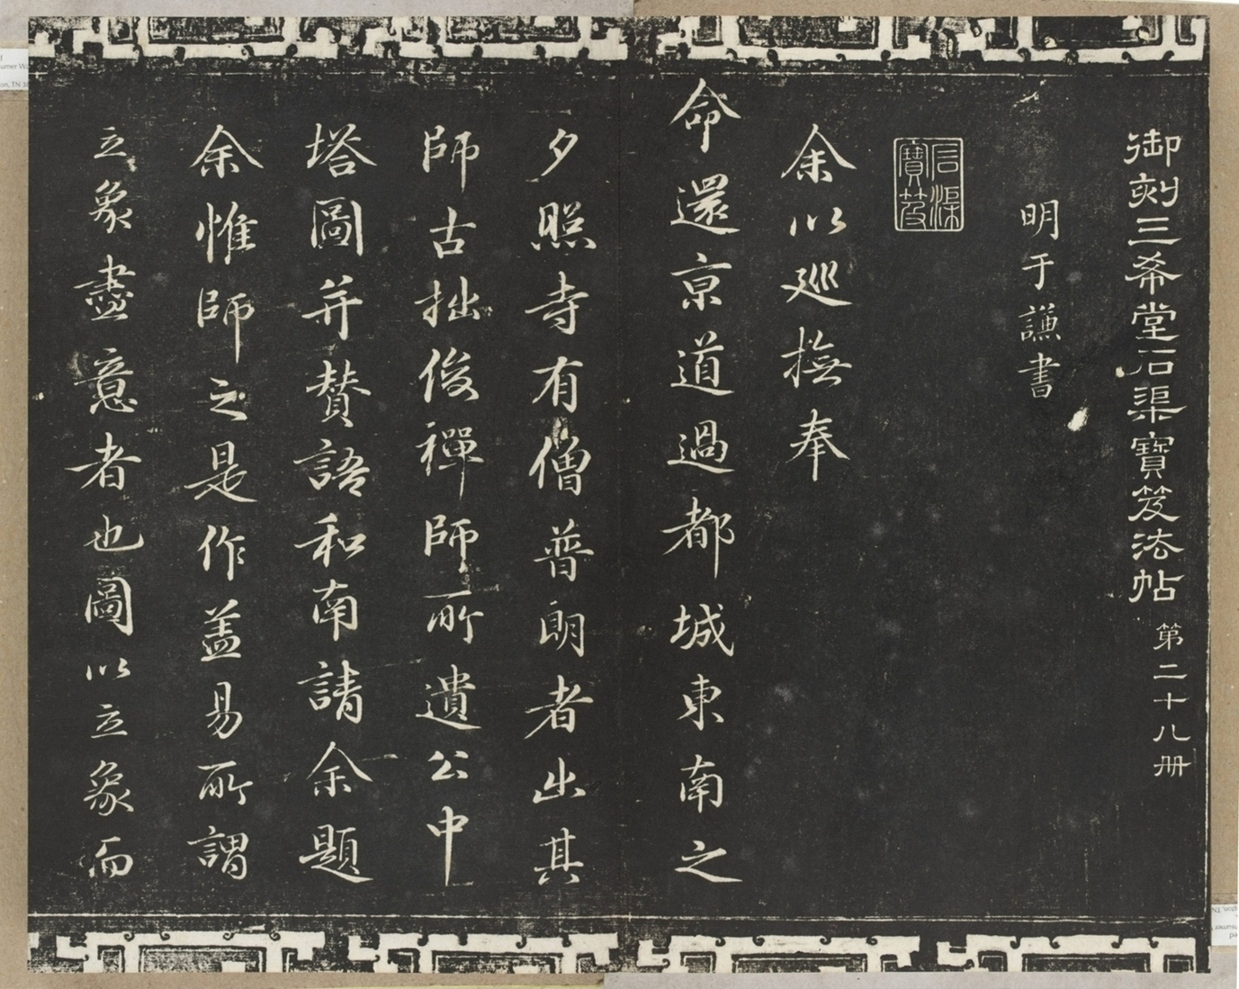 御刻三希堂石渠寶笈法帖 第二十八册
明于謙書
石渠寶笈
余以巡撫奉
命還京道過都城東南之
夕照寺有僧普朗者出其
師古拙俊禪師所遺公中
塔圖并贊語和南請余題
余惟師之是作盖易所謂
立象盡意者也圖以立象而